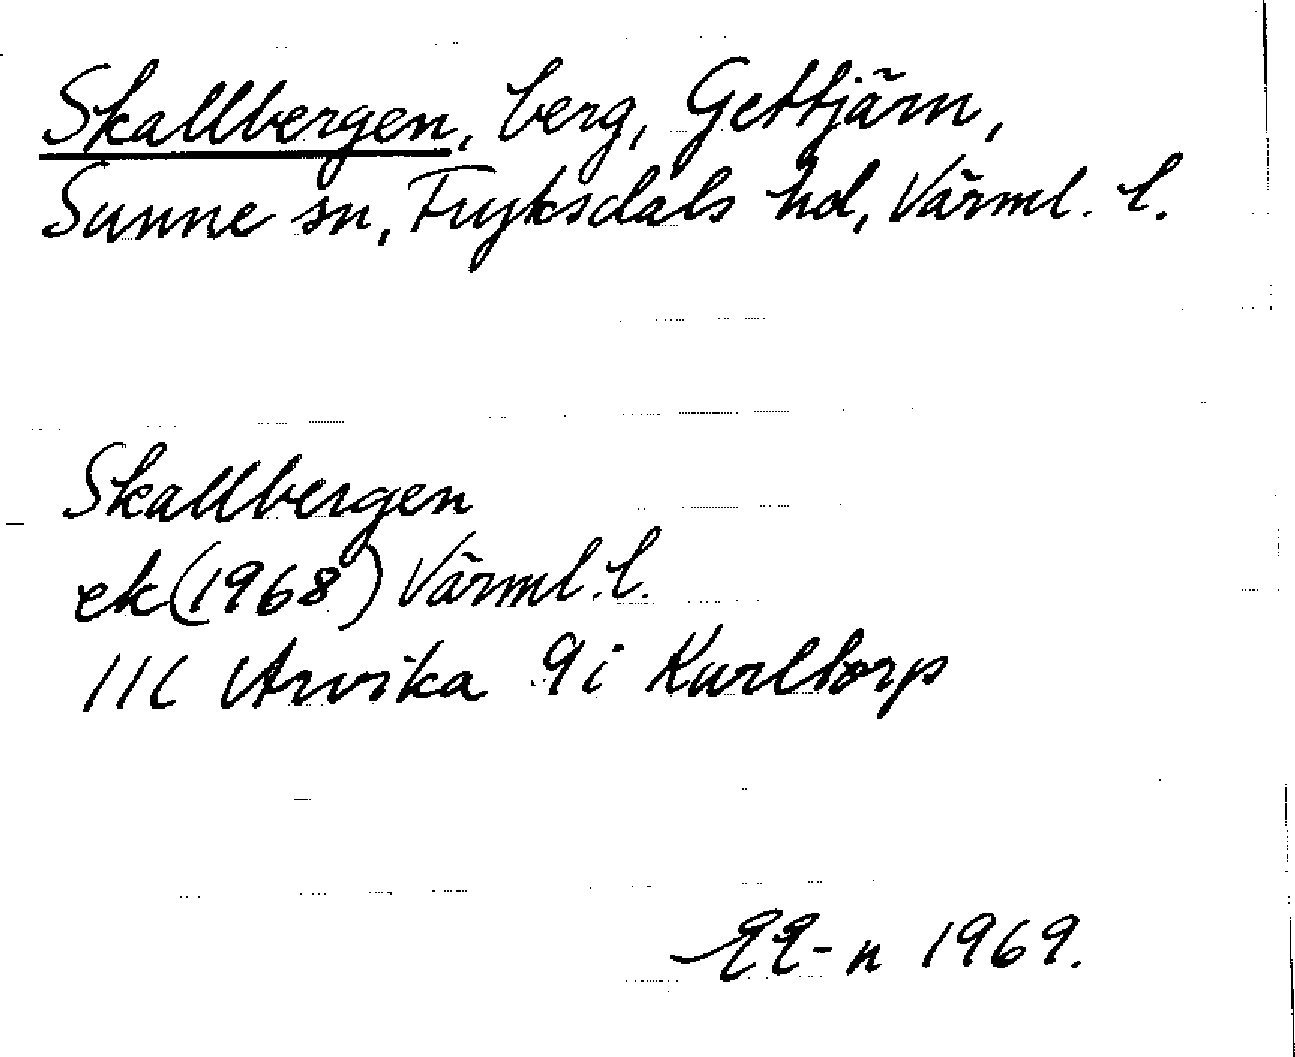 Skallbergen, berg, Gettjärn,
Sunne sn, Fryksdals hd, Värml. l.
Skallbergen
ek (1968) Värml. l.
11C Arvika 9i Karltorp
EE-n 1969.